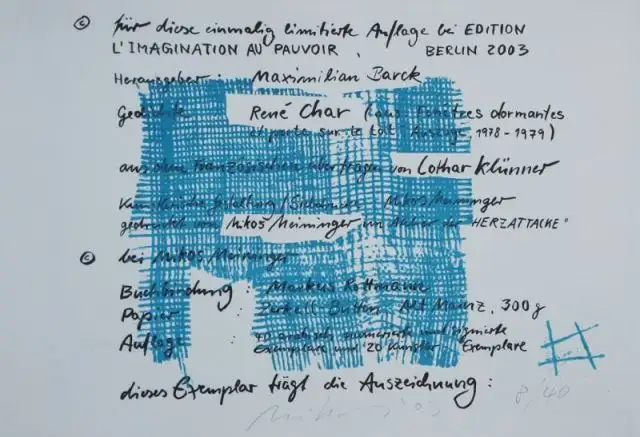 © für diese einmalig limitierte Auflage bei EDITION
L'IMAGINATION AU PAUVOIR, BERLIN 2003
Herausgeber: Maximilian Barck
Gedichte René Char (aus: Fenêtres dormantes
et porte sur le toit. Auszüge, 1978-1979)
aus dem Französischen übertragen von Lothar Klünner
Künstlerische Gestaltung/Siebdrucke Mikos Meininger
gedruckt von Mikoš Meininger im Atelier der "HERZATTACKE"
© bei Mikos Meininger
Buchbindung: Markus Rottmann
Papier: Zerkall Bütten, Alt Mainz, 300g
Auflage: 40 numerierte und signierte
Exemplare und 20 Künstler-Exemplare
dieses Exemplar trägt die Auszeichnung:
8/40